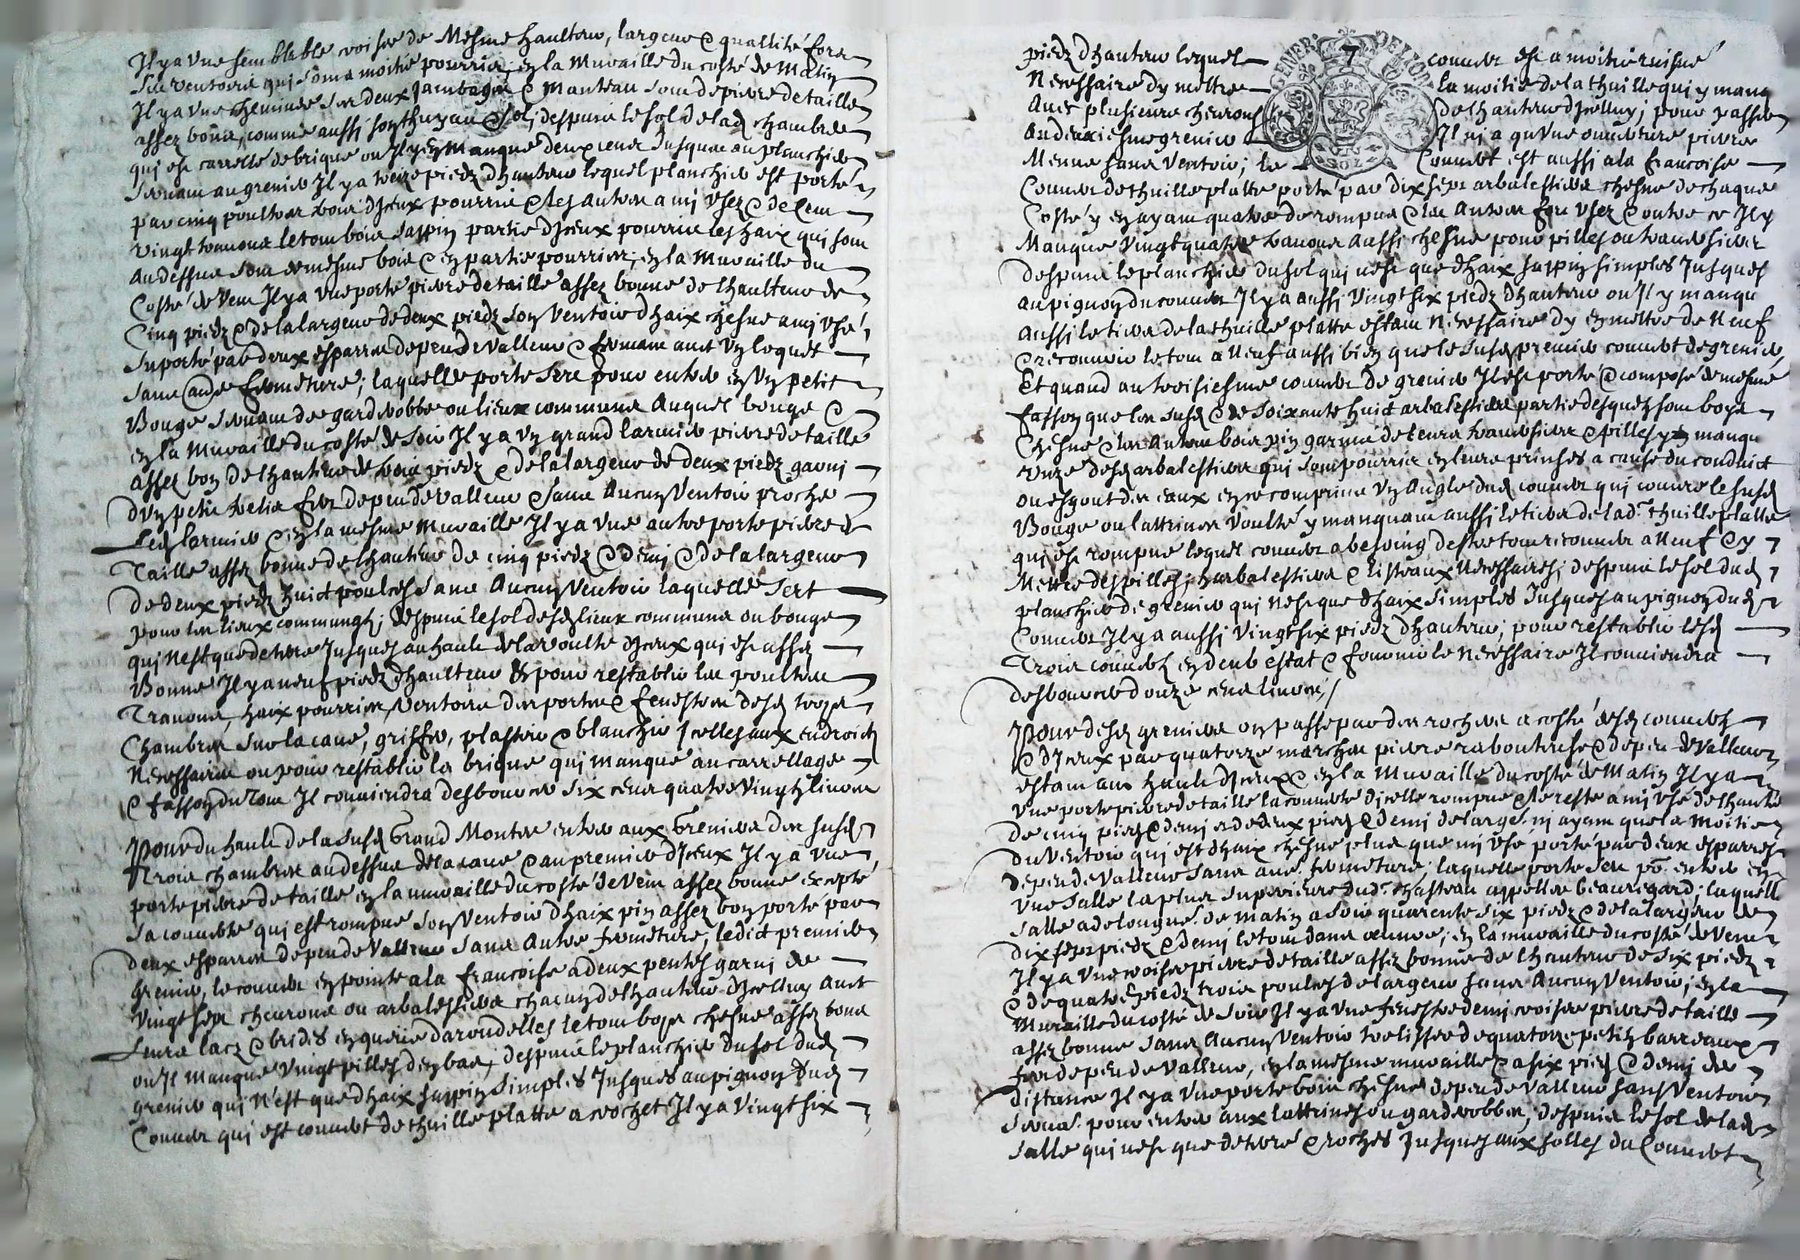 Il y a une semblable croisee de mesme haulteur, largeur et quallité fors
ses ventoirs qui sont a moitié pourris, en la muraille du costé de matin
Il y a une cheminee ses deux jambages et manteau sont de pierre de taille
assez bons, comme aussi son thuyau et sol, despuis le sol de lad chambre
qui est carrellé de brique ou Il en manque deux cens jusques au planchier
servant au grenier Il y a treize piedz d'hauteur lequel planchier est porté
par cinq poultres bois d'Iceux pourris et les autres a mi usez et de leur
vingt travons le tout bois sappin partie d'Iceux pourris les haix qui sont
au dessus sont de mesme bois et en partie pourris, en la muraille du
Costé de vent Il y a une porte pierre de taille assez bonne de l'haulteur de
Cinq piedz et de la largeur de deux piedz son ventoir d'haix chesne a mi usé
suporté par deux esparres de peu de valleur et fermant avec un loquet
sans autre fermeture; laquelle porte sert pour entrer en un petit
Bouge servant de garderobbe ou lieux communs auquel bouge et
en la muraille du costé de soir Il y a un grand larmier pierre de taille
assez bon de l'hauteur de trois piedz et de la largeur de deux piedz garni
d'un petit trelis fer de peu de valleur et sans aucun ventoir proche
led larmier et en la mesme muraille Il y a une autre porte pierre de
Taille assez bonne de l'hauteur de cinq piedz et demi et de la largeur
de deux piedz huict poulces sans aucun ventoir laquelle sert
pour les lieux communs; despuis le sol desd lieux communs ou bouge
qui n'est que de terre jusques au hault de la voulte d'Iceux qui est assez
Bonne Il y a neuf piedz d'haulteur et pour restablir les poultres
Travons, haix pourris, ventoirs des portes et fenestres desd trois
Chambres sur la cave, griffer, plastrir et blanchir Icelles aux endroicts
necessaires ou pour restablir la brique qui manque au carrellage
et fasson du tout Il conviendra desbourcer six cens quatre vingtz livres
Pour du hault de la susd Grand Montee entrer aux greniers des susd
Trois chambres au dessus de la cave et au premier d'Iceux Il y a une
porte pierre de taille en la muraille du costé de vent assez bonne excepté
sa couverte qui est rompue son ventoir d'haix pin assez bon porté par
deux esparres de peu de valleur sans autre fermeture, ledict premier
grenier, le couvert en pointe a la francoise a deux pentes garni de
vingt sept chevrons ou arbalestiers chacun de l'hauteur d'Icelluy avec
Leurs lacz et brides en queue d'arondelles le tout bois chesne assez bons
ou Il manque vingt pilles d'en bas, despuis le planchier du sol dud
grenier qui n'est que d'haix sappin simples jusques au pignon dud
Couvert qui est couvert de thuille platte a crochet Il y a vingt six
piedz d'hauteur lequel couvert est a moitié ruisné
Necessaire d'y mettre la moitié de la thuille qui y manq
Avec plusieurs chevrons de l'hauteur d'Icelluy; pour passer
Au deuxiesme grenier Il n'i a qu'une ouverture pierre
Menue sans ventoir; le Couvert est aussi a la francoise
7
Couvert de thuille platte porté par dix sept arbalestiers chesne de chaque
Costé y en ayant quatre de rompus et les autres fort usez et outre ce Il y
Manque vingt quatre travons aussi chesne pour pilles ou traversiers
despuis le planchier du sol qui n'est que d'haix sappin simples jusques
au pignon du couvert Il y a aussi vingt six piedz d'hauteur ou Il y manque
aussi le tiers de la thuille platte estant necessaire d'y en mettre de neuf
et recouvrir le tout a neuf aussi bien que le susd premier couvert de grenier,
Et quand au troisiesme couvert de grenier Il est porté et composé de mesme
fasson que les susd et de soixante huict arbalestiers partie desquelz sont bois
Chesne et les autres bois pin garnis de leurs traversiers et pilles y manque
unze desd arbalestiers qui sont pourris en leurs prinses a cause du conduict
ou esgout des eaux en ce comprins un angle dud couvert qui couvre le susd
Bouge ou lattrines voulté y manquant aussi le tiers de lad. thuille platte
qui est rompue lequel couvert a besoing d'estre tout recouvert a neuf et y
Mettre des pilles, arbalestiers et listeaux necessaires; despuis le sol dud
planchier de grenier qui n'est que d'haix simples jusques au pignon dud
Couvert Il y a aussi vingt six piedz d'hauteur; pour restablir lesd
Trois couvertz en deub estat et fournir le necessaire Il conviendra
desbourcer douze cens livres /
Pour desd greniers on passe par des rochers a costé desd couvertz
et d'Iceux par quatorze marches pierre et de peu de valleur
estant au hault d'Iceux et en la muraille du costé de matin Il y a
une porte pierre de taille la couverte d'Icelle rompue et le reste a mi usé de l'hauteur
de cinq piedz et demi et de deux piedz et demi de large n'i ayant que la moitié
du ventoir qui est d'haix chesne plus que mi usé porté par deux esparres
de peu de valleur sans autre fermeture; laquelle porte sert po. entrer en
une salle la plus superieure dud. chasteau appellee beauregard; laquelle
salle a de longueur de matin a soir quarente six piedz et de la largeur de
dix sept piedz et demi le tout dans oeuvre; en la muraille du costé de vent
Il y a une croisee pierre de taille assez bonne de l'hauteur de six piedz
et de quatre piedz trois poulces de largeur sans aucun ventoir; en la
muraille du costé de soir Il y a une fenestre demi croisee pierre de taille
assez bonne sans aucun ventoir trelissee de quatorze petitz barreaux
fer de peu de valleur, en la mesme muraille et a six piedz et demi de
distance Il y a une porte bois chesne de peu de valleur sans ventoir
servant. pour entrer aux lattrines ou garderobbes; despuis le sol de lad
salle qui n'est que de terre et roches jusques aux solles du Couvert